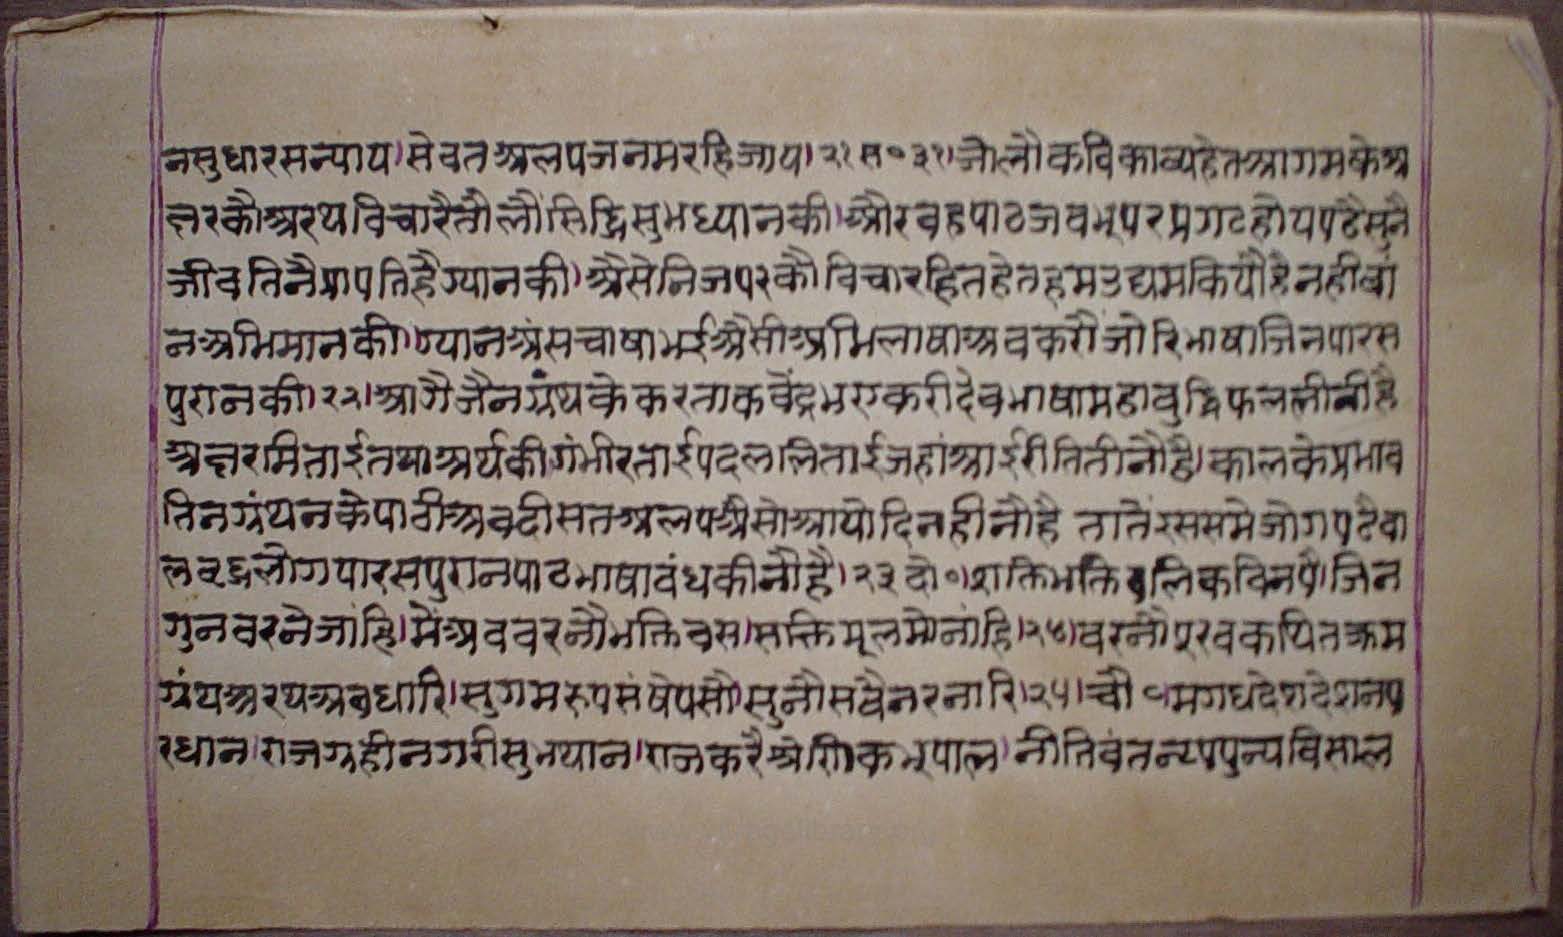 नसुधारसन्पाय।सेवतअलपजनमरहिजाय।२१स०३१।जोलौकविकाव्यहेतआगमकेअ
क्षरकौअरथविचारैतौलौसिद्धिसुभध्यानकी।औरवहपाठजबभूपरप्रगटहोयपढैसुनै
जीवतिनैप्रापतिहैग्यानकी।अैसेनिजपरकौविचारहितहेतहमउद्यमकियौहैनहीबां
नअभिमानकी।ग्यानअंसचाषाभईअैसीअभिलाषाअबकरौंजोरिभाषाजिनपारस
पुरानकी।२२।आगैजैनग्रंथकेकरताकवेंद्रभएकरीदेवभाषामहाबुद्धिफललीनौहै
अक्षरमिताईतथाअर्थकीगंभीरताईपदललिताईजहांआईरीतितीनौहै।कालकेप्रभाव
तिनग्रंथनकेपाठीअबदीसतअलपअैसोआयोदिनहीनौहै तातैंरससमेजोगपढैबा
लबुद्धलोगपारसपुरानपाठभाषाबंधकीनौहै।२३दो०।शक्तिभक्तिबलिकविनपै।जिन
गुनवरनैजांहि।मैंअबवरनौभक्तिवस।सक्तिमूलमोनांहि।२४।वरनौपूरवकथितक्रम
ग्रंथअरथअवधारि।सुगमरूपसंषेपसौ।सुनौसबैनरनारि।२५।चौ०मगधदेशदेशनप
रधान।राजग्रहीनगरीसुभथान।राजकरैश्रेणिकभूपाल।नीतिवंतनृपपुन्यविसाल